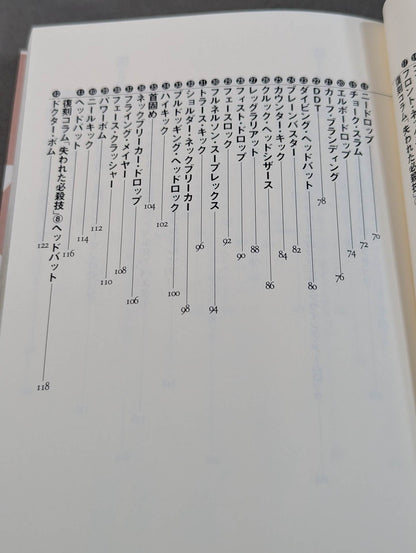 復刻コラム「失われた必殺
⑱ニードロップ 70
⑲チョーク・スラム 72
⑳エルボードロップ 74
㉑カーフ・ブランディング 76
㉒DDT 78
㉓ダイビング・ヘッドバット 80
㉔ブレーンバスター 82
㉕カウンター・キック 84
㉖クルック・ヘッドシザース 86
㉗レッグラリアット 88
㉘フィスト・ドロップ 90
㉙フェースロック 92
㉚フルネルソン・スープレックス 94
㉛トラース・キック 96
㉜ショルダー・ネックブリーカー 98
㉝ブルドッギング・ヘッドロック 100
㉞ハイキック 102
㉟首固め 104
㊱ネックブリーカー・ドロップ 106
㊲フライング・メイヤー 108
㊳フェース・クラッシャー 110
㊴パワーボム 112
㊵ニールキック 114
㊶ヘッドバット 116
復刻コラム「失われた必殺技」⑧ヘッドバット 118
㊷ドクター・ボム 122